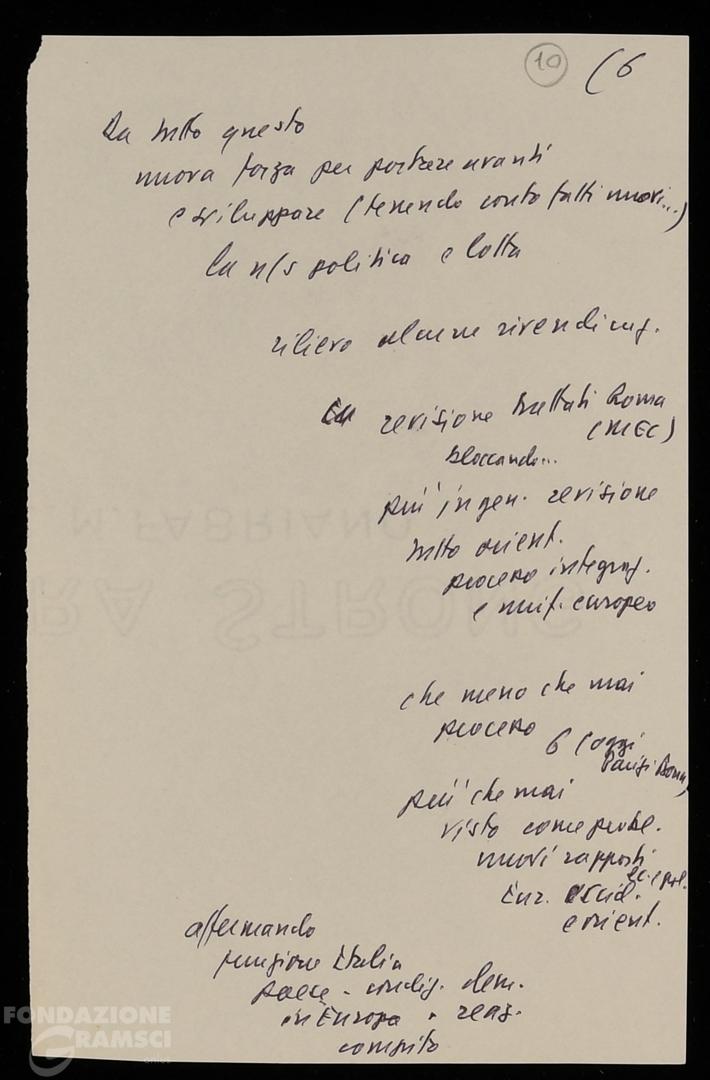 10 (6
Da tutto questo
nuova forza per portare avanti
e sviluppare (tenendo conto fatti nuovi...)
la n/s politica e lotta
rilievo alcune rivendicaz.
revisione Trattati Roma
(MEC)
bloccando...
più in gen. revisione
tutto orient.
processo integraz.
e unif. europeo
che meno che mai
processo 6 (oggi
Parigi Bonn)
più che mai
visto come probl.
nuovi rapporti
ec. e pol.
Eur. occid.
e orient.
affermando
funzione Italia
pace - condiz. dem.
in Europa
compito
M. FABRIANO
RA STRONG
FONDAZIONE
GRAMSCI
onlus